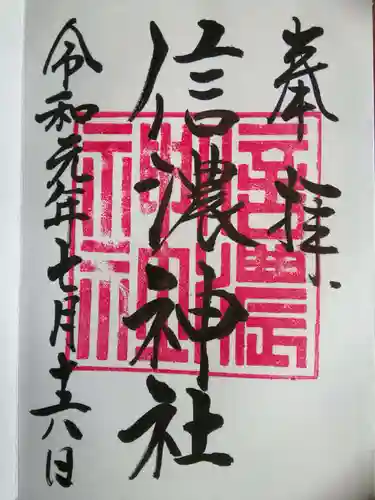 奉拝
信濃神社
令和元年七月十六日
信濃神社